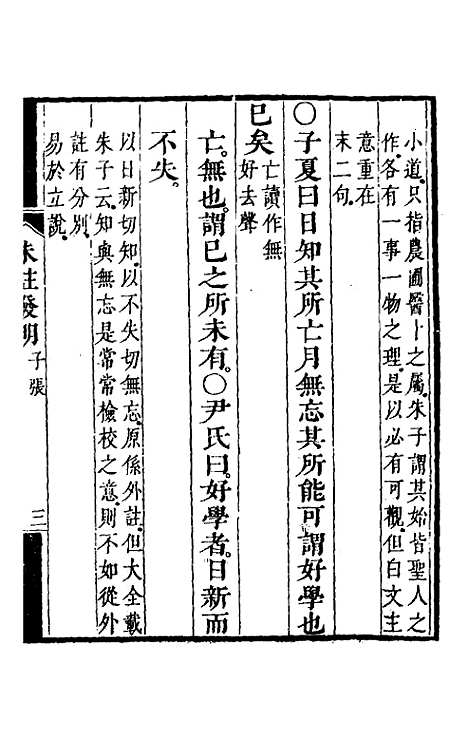 小道只指農圃醫卜之屬朱子謂其始皆聖人之
作各有一事一物之理是以必有可觀但白文主
意重在
末二句
〇子夏曰日知其所亡月無忘其所能可謂好學也
已矣亡讀作無
好去聲
亡無也謂已之所未有〇尹氏曰好學者日新而
不失
以日新切知以不失切無忘原係外註但大全載
朱子云知與無忘是常常檢校之意則不如從外
註有分別
易於立說
朱註發明
子張
三